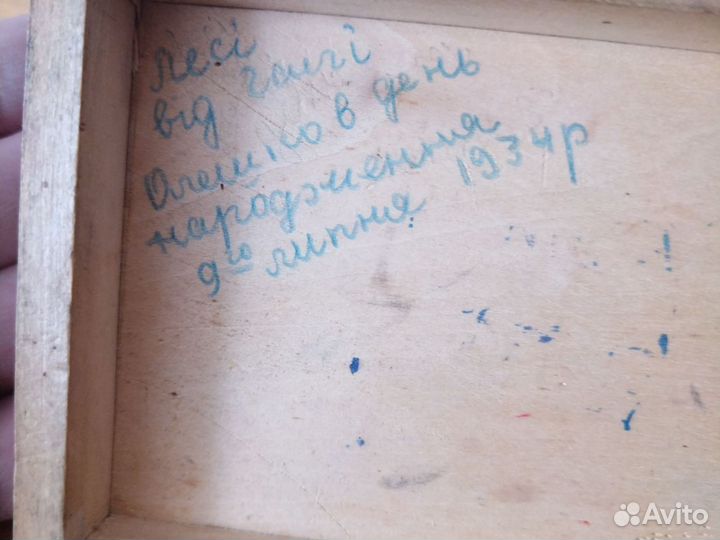 Лесі
від Галі
Олешко в день
народження
9го липня 1934р
Avito